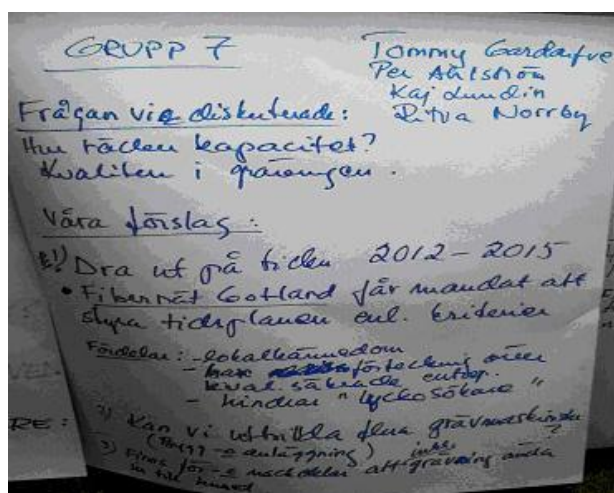 GRUPP 7
Tommy Gardarfve
Per Ahlström
Kaj Lundin
Ritva Norrby
Frågan vi diskuterade:
Hur räcker kapacitet?
Kvaliten i grävningen.
Våra förslag:
1) Dra ut på tiden 2012-2015
• Fibernät Gotland får mandat att
styra tidsplanen enl. kriterier
Fördelar: - lokalkännedom
- har förteckning över
kval.säkrade entrep.
- hindrar "lyckosökare"
2) Kan vi utbilda flera grävmaskinister?
(Bygg-o anläggning)
3) Finns för-o nackdelar att inte grävning ända
in till huset
RE: